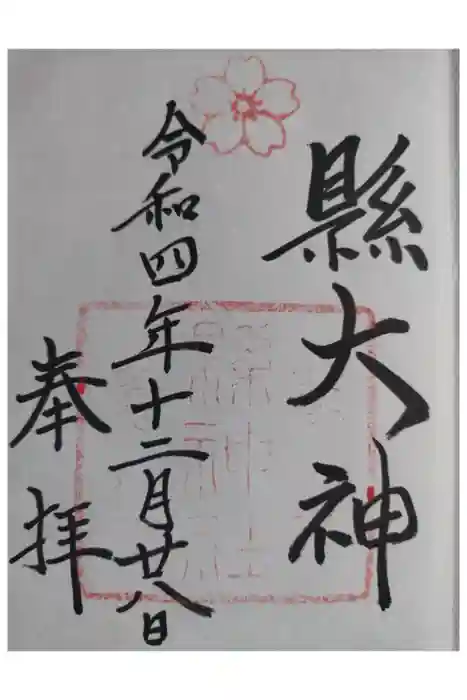 縣大神
令和四年十二月廿八日
奉拝